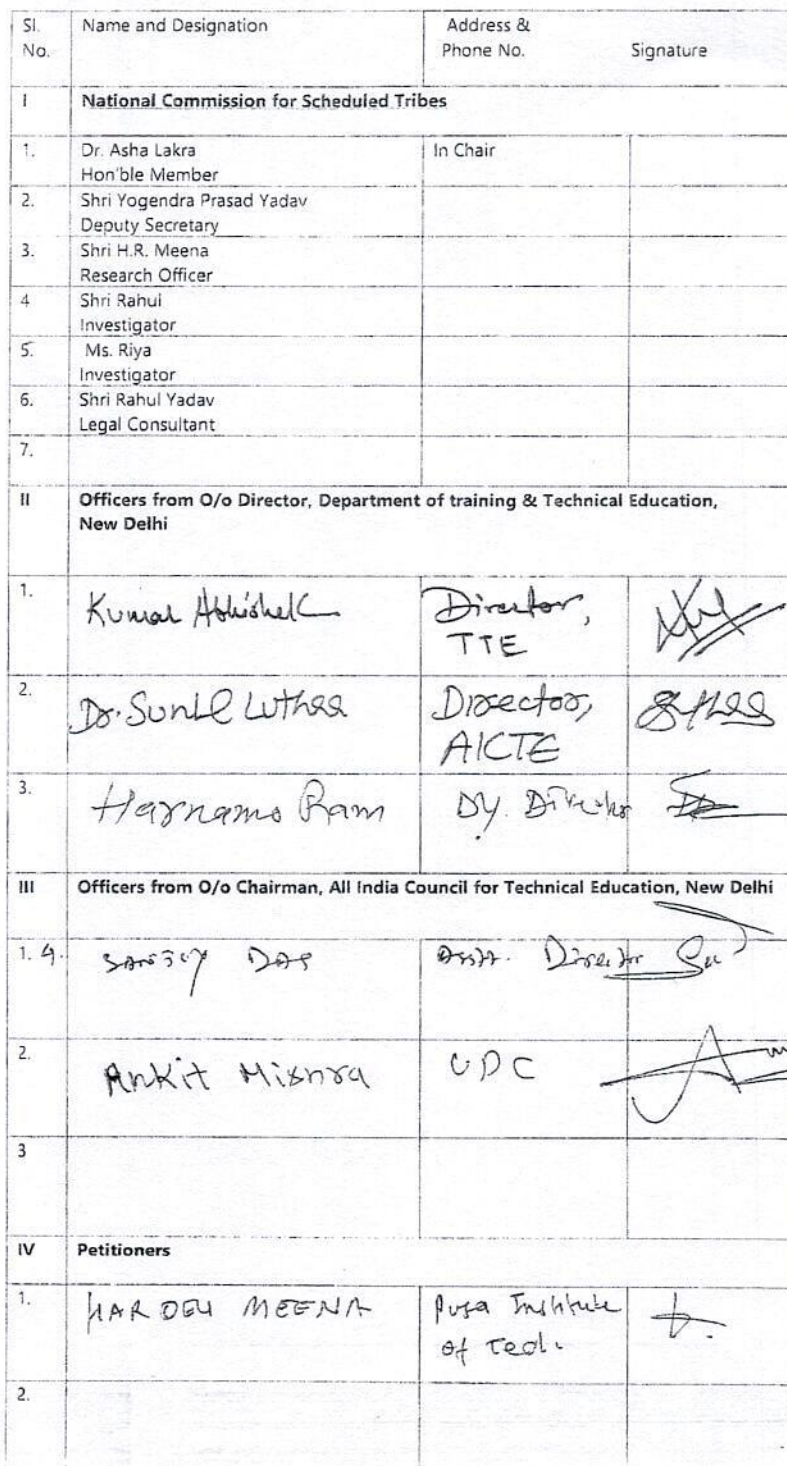 Sl. Name and Designation Address &
No. Phone No. Signature
I National Commission for Scheduled Tribes
1. Dr. Asha Lakra In Chair
Hon'ble Member
2. Shri Yogendra Prasad Yadav
Deputy Secretary
3. Shri H.R. Meena
Research Officer
4 Shri Rahul
Investigator
5. Ms. Riya
Investigator
6. Shri Rahul Yadav
Legal Consultant
7.
II Officers from O/o Director, Department of training & Technical Education,
New Delhi
1. Kumar Abhishek Director,
TTE
2. Dr. Sunil Luthra Director,
AICTE
3. Harnam Ram Dy. Director
III Officers from O/o Chairman, All India Council for Technical Education, New Delhi
1. 4. Das Asstt. Director
2. Ankit Mishra UDC
3
IV Petitioners
1. MEENA Pusa Institute
of Tech.
2.